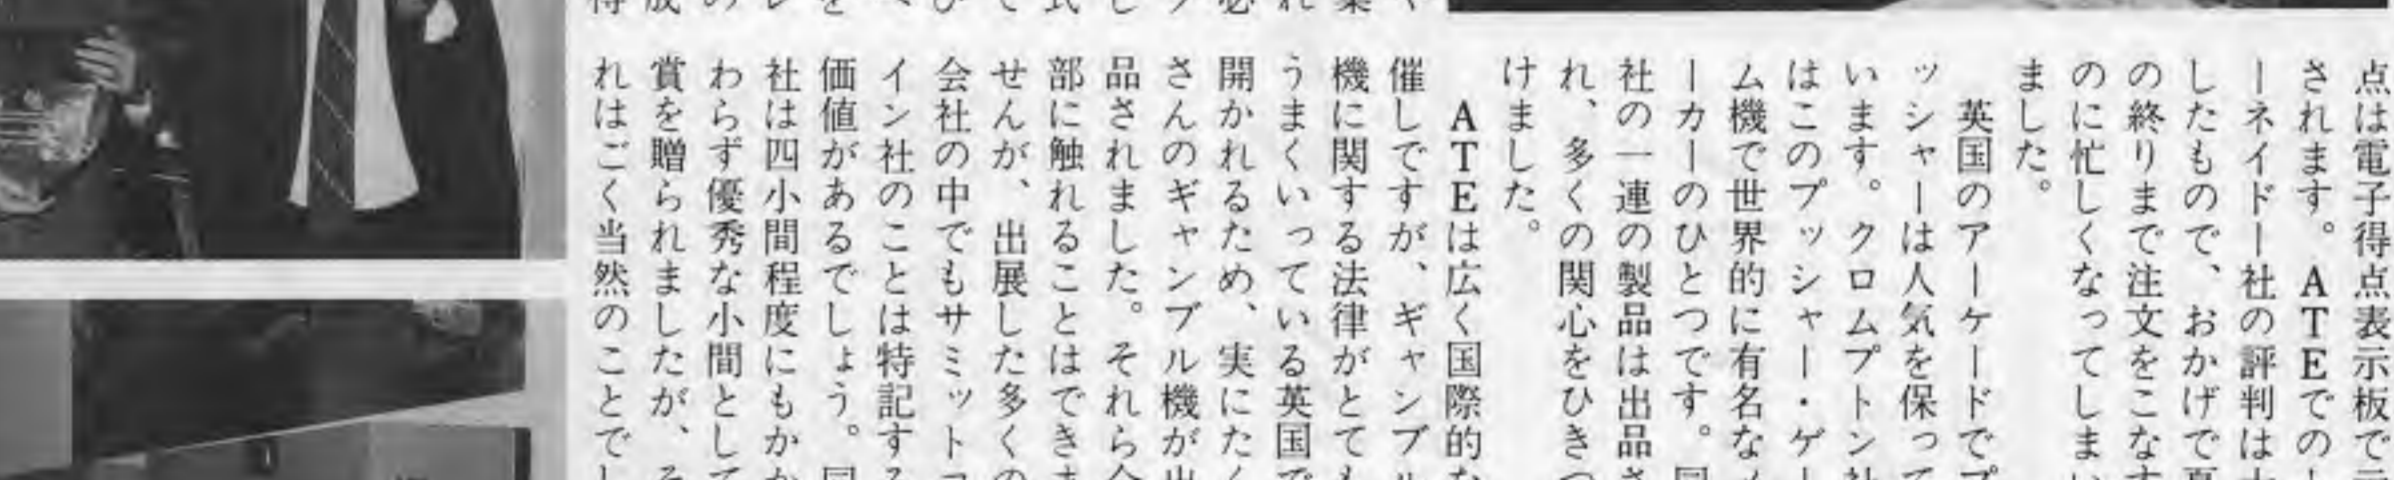 点は電子得点表示板で示
されます。ATEでの
ーネイドー社の評判は
したもので、おかげで夏
の終りまで注文をこなす
のに忙しくなってしまい
ました。
英国のアーケードでプ
ッシャーは人気を保って
います。クロムプトン社
はこのプッシャー・ゲー
ム機で世界的に有名なメ
ーカーのひとつです。同
社の一連の製品は出品さ
れ、多くの関心をひきつ
けました。
ATEは広く国際的な
催しですが、ギャンブル
機に関する法律がとても
うまくいっている英国で
開かれるため、実にたく
さんのギャンブル機が出
品されました。それら全
部に触れることはできま
せんが、出展した多くの
会社の中でもサミットコ
イン社のことは特記する
価値があるでしょう。同
社は四小間程度にもかか
わらず優秀な小間として
賞を贈られましたが、そ
れはごく当然のことでし